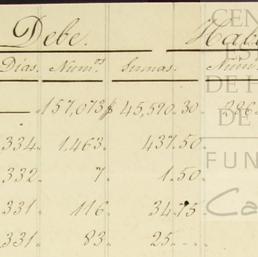 Debe. Habe
Dias. Num.os Sumas. Num
157,073 45,590.30. 286
334. 1.463. 437.50.
332. 7. 1.50.
331. 116. 34.75
331. 83. 25.--.
CEN
DE
DE
FUN
Ca